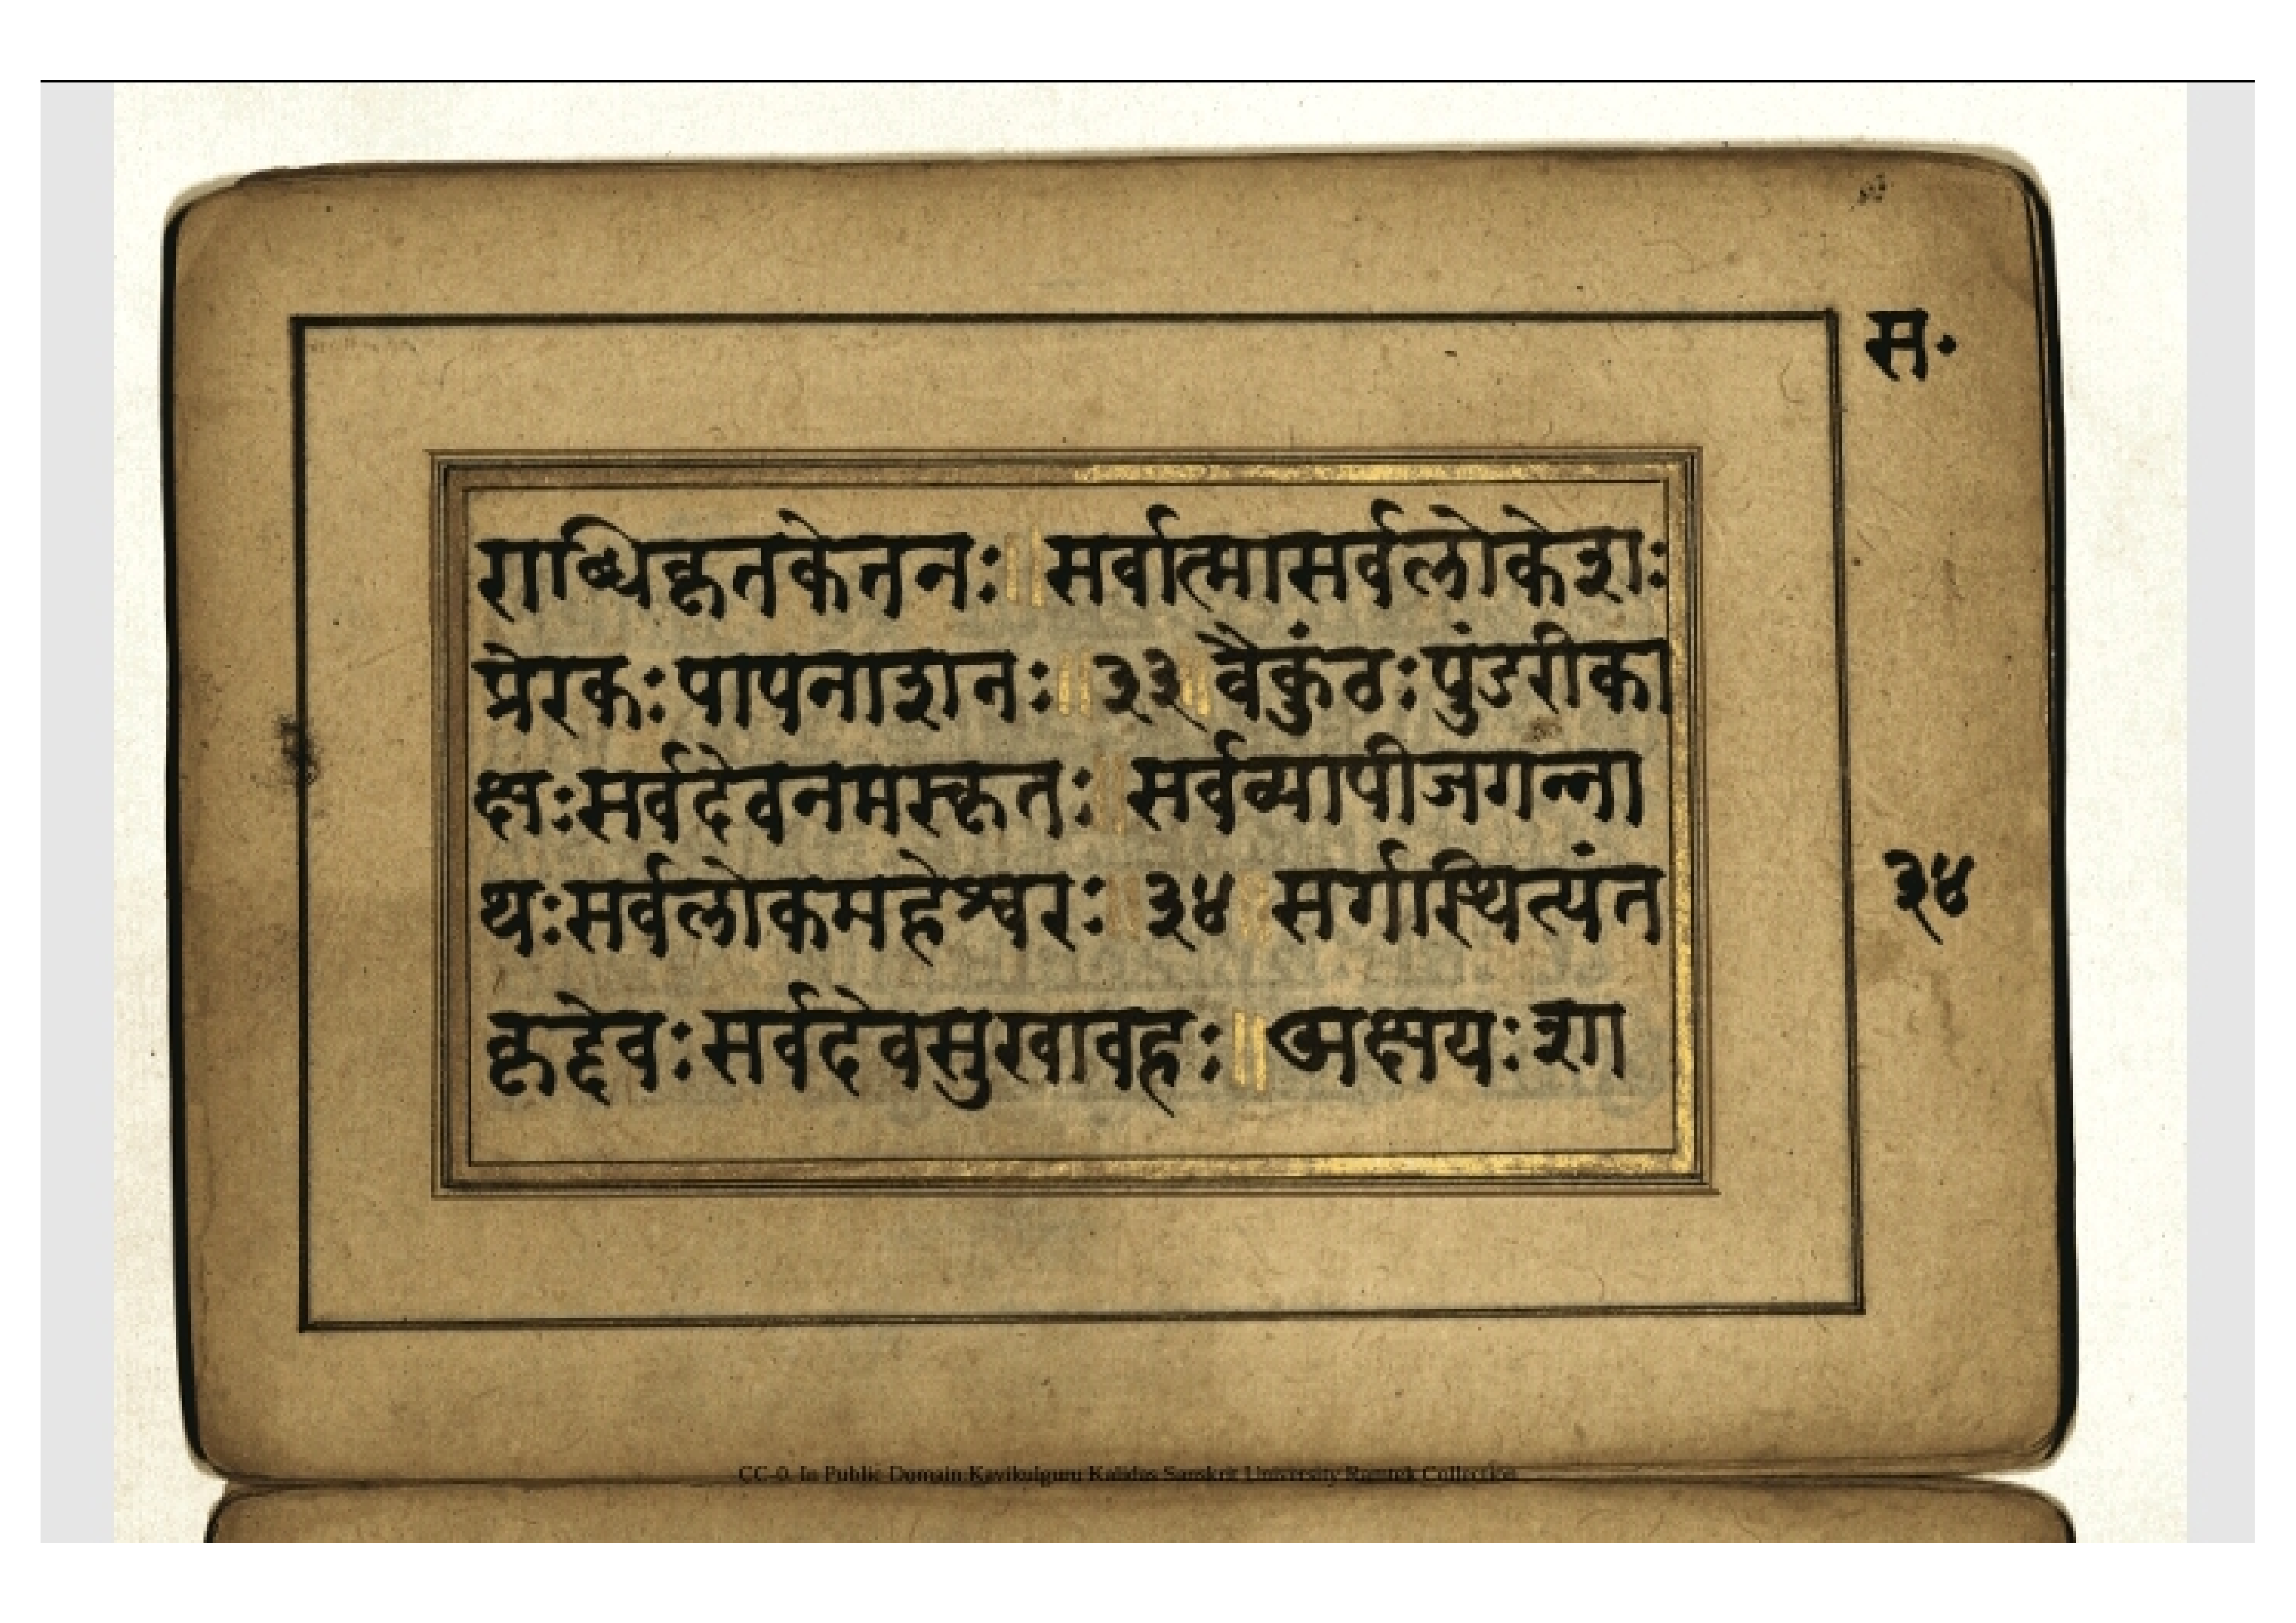 स॰
राब्धिकृतकेतनः॥सर्वात्मासर्वलोकेशः
प्रेरकः पापनाशनः॥३३॥वैकुंठः पुंडरीका
क्षः सर्वदेवनमस्कृतः॥सर्वव्यापीजगन्ना
थः सर्वलोकमहेश्वरः॥३४॥सर्गस्थित्यंत
३४
कृद्देवः सर्वदेवसुखावहः॥अक्षयः शा
CC-0. In Public Domain.Kavikulguru Kalidas Sanskrit University Ramtek Collection